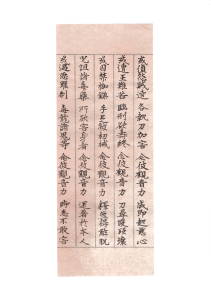 或値怨賊遶 各執刀加害 念彼觀音力 咸即起慈心
或遭王難苦 臨刑欲壽終 念彼觀音力 刀尋段段壞
或囚禁枷鎖 手足被杻械 念彼觀音力 釋然得解脫
呪詛諸毒藥 所欲害身者 念彼觀音力 還著於本人
或遇惡羅刹 毒龍諸鬼等 念彼觀音力 時悉不敢害